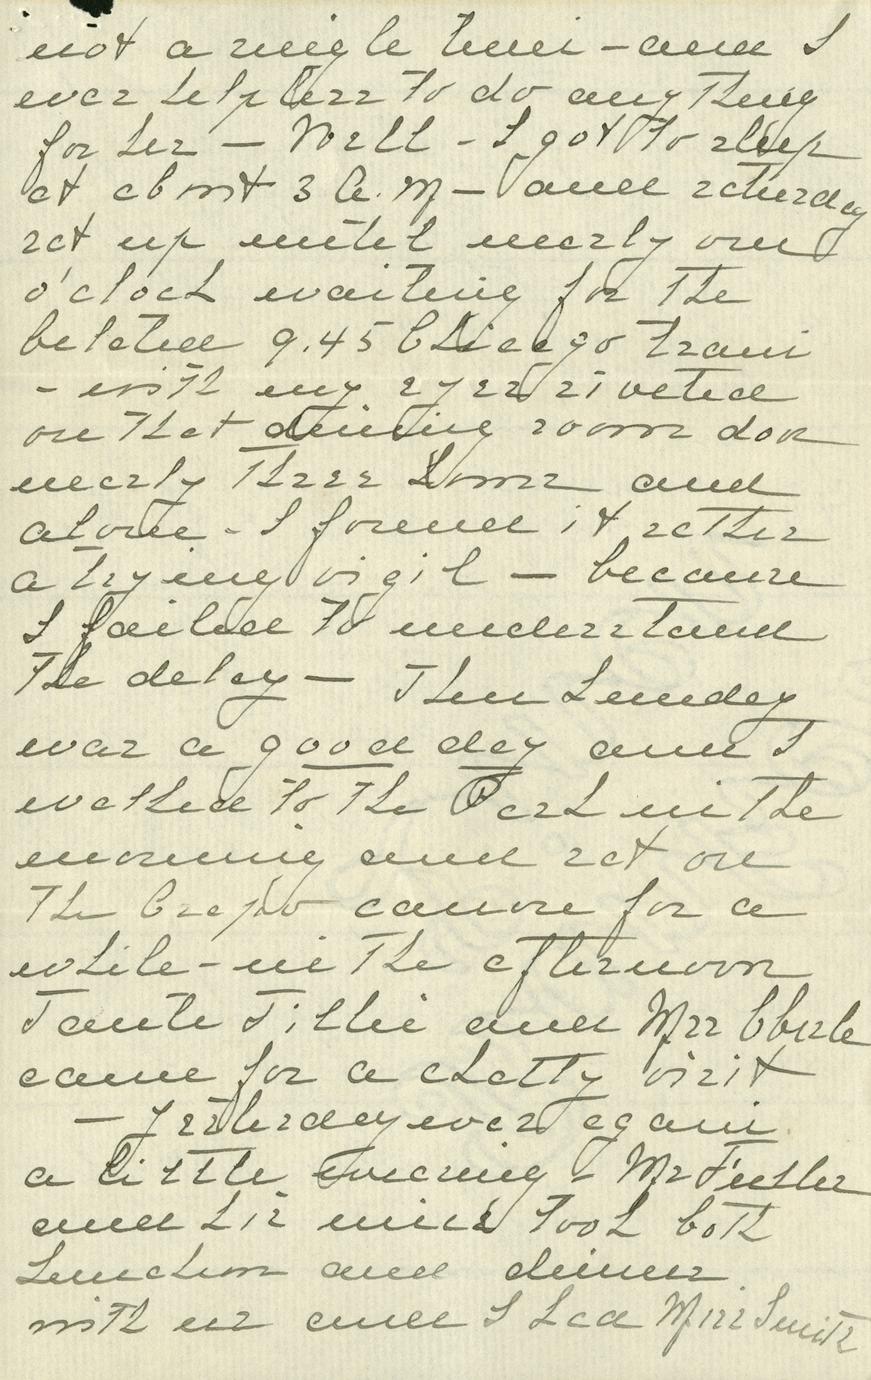 not a single time - and I
was helpless to do anything
for her — Well - I got to sleep
at about 3 A.M — and saturday
sat up until nearly one
o'clock waiting for the
belated 9.45 Chicago train
- with my eyes riveted
on that dining room door
nearly three hours and
alone - I found it rather
a trying vigil — because
I failed to understand
the delay — Then Sunday
was a good day and I
walked to the Park in the
morning and sat on
the canoe for a
while - in the afternoon
Tante Tillie and Mrs Eberle
came for a chatty visit
— Yesterday was again
a little wearing - Mr Fuller
and his niece took both
luncheon and dinner
with us and I had Miss Smith